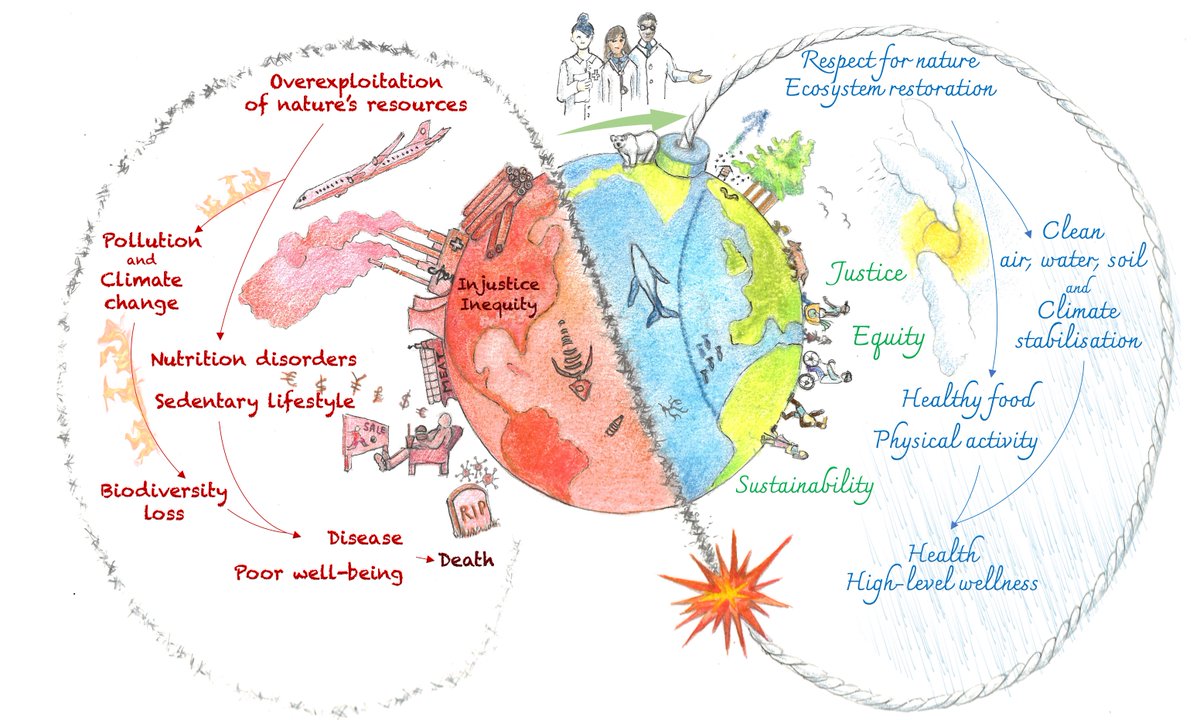 Overexploitation
of nature's resources
Pollution
and
Climate
change
Nutrition disorders
Sedentary lifestyle
Biodiversity
loss
Disease
Poor well-being
Death
Injustice
Inequity
MEAT
SALE
€ ¥ € $ € $ €
RIP
Respect for nature
Ecosystem restoration
Clean
air, water, soil
and
Climate
stabilisation
Justice
Equity
Sustainability
Healthy food
Physical activity
Health
High-level wellness